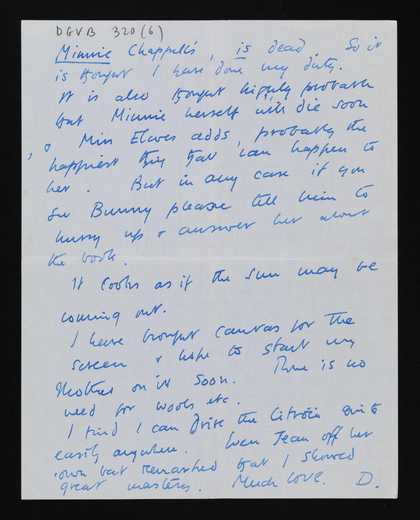 DGVB 320 (6)
Minnie Chappell's, is dead. So it
is thought I have done my duty.
It is also thought highly probable
that Minnie herself will die soon
, & Miss Elwes adds, probably the
happiest thing that can happen to
her. But in any case if you
see Bunny please tell him to
hurry up & answer her about
the book.
It looks as if the sun may be
coming out.
I have bought canvas for the
screen & hope to start my
on it soon. There is no
need for wools etc.
I find I can drive the Citröen quite
easily anywhere. Even Jean off her
own bat remarked that I showed
great mastery. Much love. D.